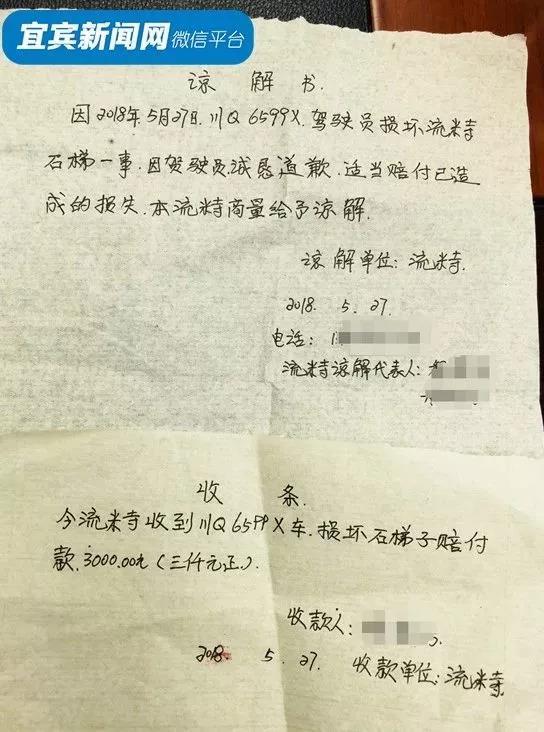 宜宾新闻网 微信平台
谅解书.
因2018年5月27日.川Q6599X.驾驶员损坏流米寺
石梯一事.因驾驶员诚恳道歉.适当赔付已造
成的损失.本流米寺商量给予谅解.
谅解单位:流米寺.
2018. 5. 27.
电话:1
流米寺谅解代表人:
收 条.
今流米寺收到川Q6599X车.损坏石梯子赔付
款.3000.00元(三仟元正).
收款人:
2018. 5. 27. 收款单位:流米寺.